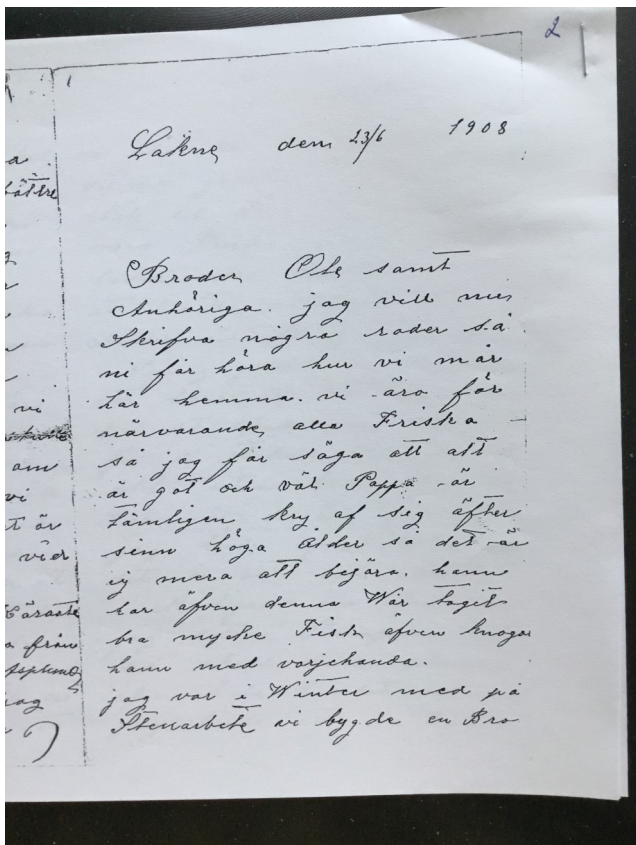 2
Läkne den 23/6 1908
Broder Ole samt
Anhöriga. jag vill nu
Skrifva några rader så
ni får höra hur vi mår
här hemma. vi äro för
närvarande alla Friska
så jag får säga att att
är got och väl Pappa är
tämligen kry af sig äfter
sinn höga ålder så det är
ej mera att bejära. hann
har äfven denna Wår tagit
bra mycke Fisk äfven knogar
hann med varjehanda.
jag var i Winter med på
Stenarbete vi bygde en Bro
a
bättre
vi
am
vi
t är
vier
Käraste
a från
jag